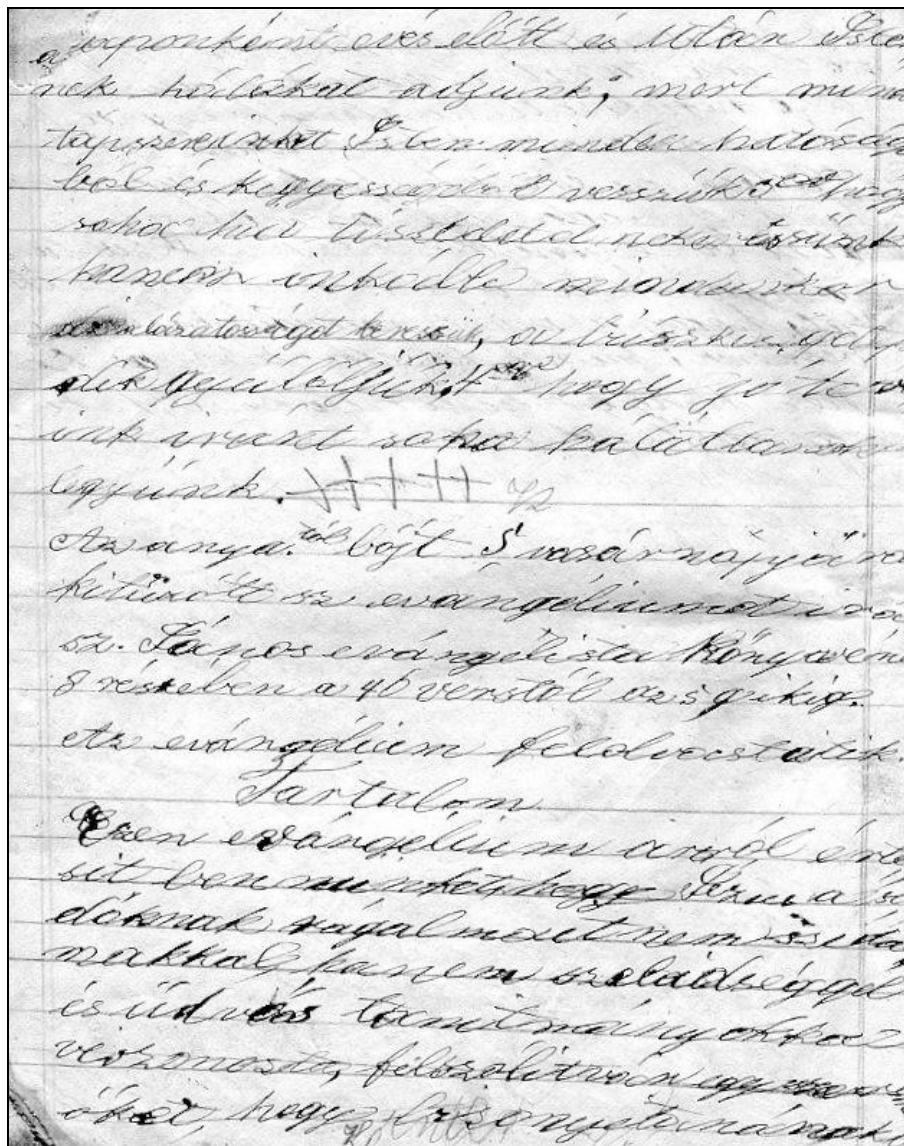 naponként evés előtt és után Iste
nek hálákat adjunk; mert mind
tápszereinket Isten minden hatóság
ból és kegyességéből vesszük 3 hogy
soha ha neki
hanem inkább mindenkor
az alázatosságot keressük, a
gyűlöljük 4 hogy jó tev
ink iránt soha háládatlanok
legyünk.
Az anya. bőjt 5 vasárnapjára
kitűzött sz evangéliumot irá
sz. János evángélista Könyvéne
8 részében a 46 verstől az 5 gikig.
Az evángélium felolvastatik.
Tartalom
Ezen evángélium arról érte
sit bennunket, hogy Jézus a zsi
dóknak rágalmait nem szida
makkal, hanem szelidséggel
és üdvös tanitmányokka
viszonozta, felszólitván
őket, hogy